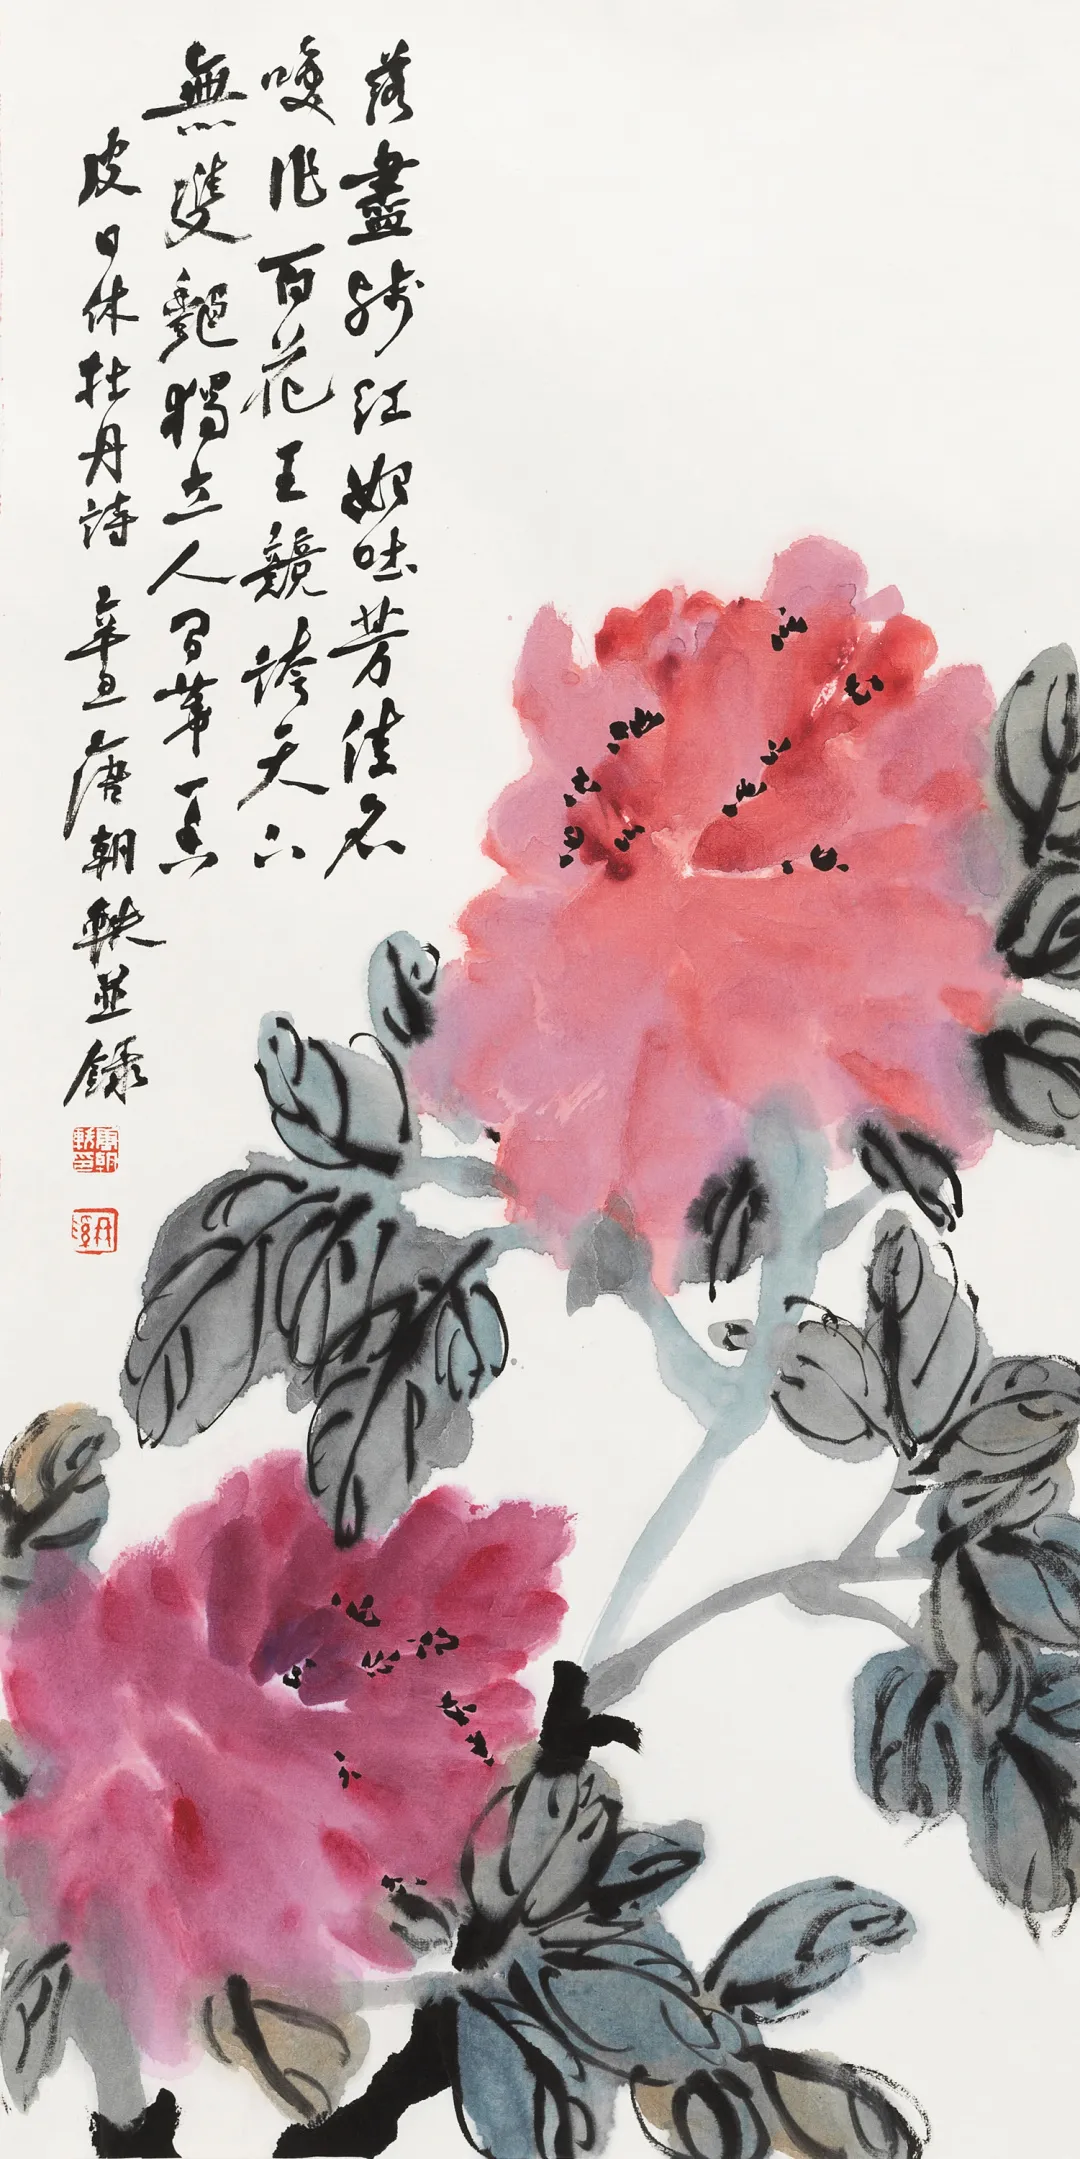 落盡殘紅始吐芳佳名
喚作百花王競誇天下
無雙艷獨立人間第一香
皮日休牡丹詩 辛丑唐朝軼並錄
唐朝軼印